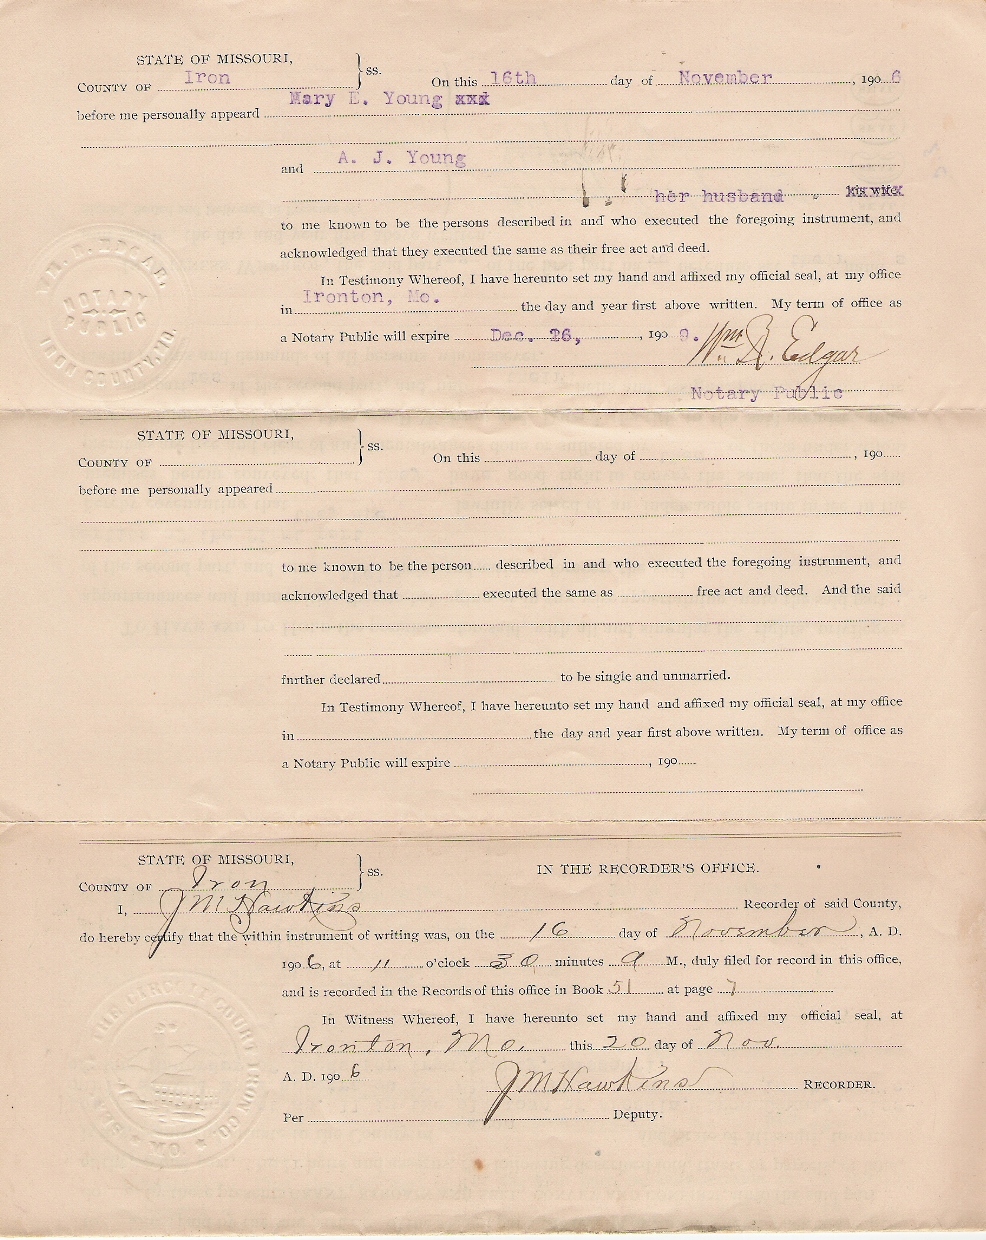 STATE OF MISSOURI,
COUNTY OF Iron } ss. On this 16th day of November, 190 6
before me personally appeard Mary E. Young xxx
and A. J. Young
her husband his wife
to me known to be the persons described in and who executed the foregoing instrument, and
acknowledged that they executed the same as their free act and deed.
In Testimony Whereof, I have hereunto set my hand and affixed my official seal, at my office
in Ironton, Mo. the day and year first above written. My term of office as
a Notary Public will expire Dec. 26, , 190 9. Wm R. Edgar
Notary Public
WM. R. EDGAR,
NOTARY
PUBLIC
IRON COUNTY, MO.
STATE OF MISSOURI,
COUNTY OF } ss. On this day of , 190
before me personally appeared
to me known to be the person described in and who executed the foregoing instrument, and
acknowledged that executed the same as free act and deed. And the said
further declared to be single and unmarried.
In Testimony Whereof, I have hereunto set my hand and affixed my official seal, at my office
in the day and year first above written. My term of office as
a Notary Public will expire , 190
STATE OF MISSOURI,
COUNTY OF Iron } ss. IN THE RECORDER'S OFFICE.
I, J M Hawkins Recorder of said County,
do hereby certify that the within instrument of writing was, on the 16 day of November, A. D.
190 6, at 11 o'clock 30 minutes a M., duly filed for record in this office,
and is recorded in the Records of this office in Book 51 at page 7
In Witness Whereof, I have hereunto set my hand and affixed my official seal, at
Ironton, Mo. this 20 day of Nov.
A. D. 190 6 J M Hawkins RECORDER.
Per Deputy.
MO.